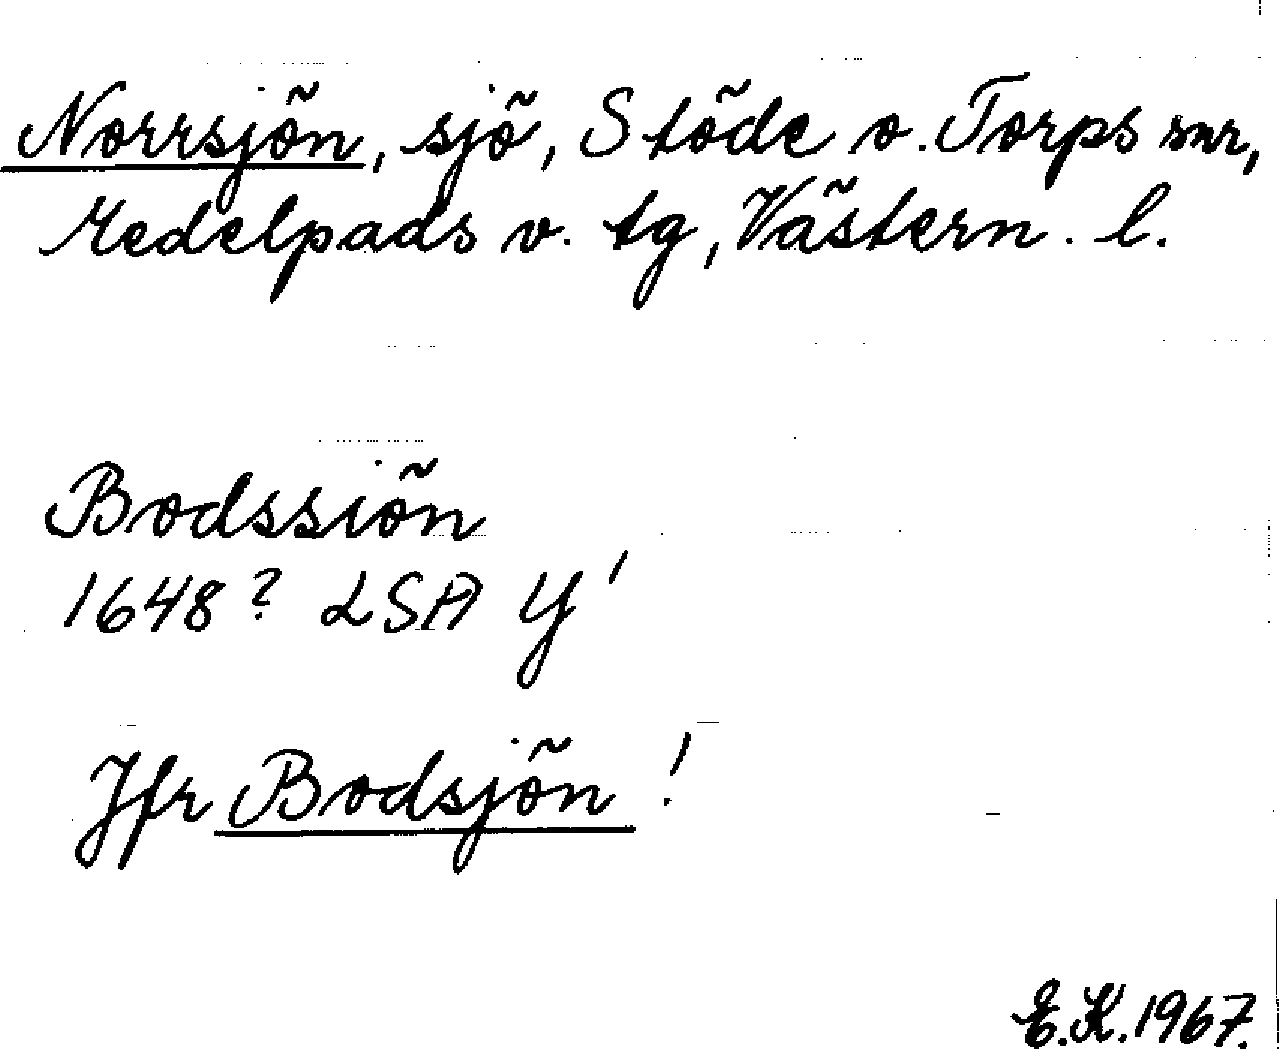 Norrsjön, sjö, Stöde o. Torps snr,
Medelpads v. tg, Västern. l.
Bodssiön
1648? LSA Y'
Jfr Bodsjön!
E.K. 1967.